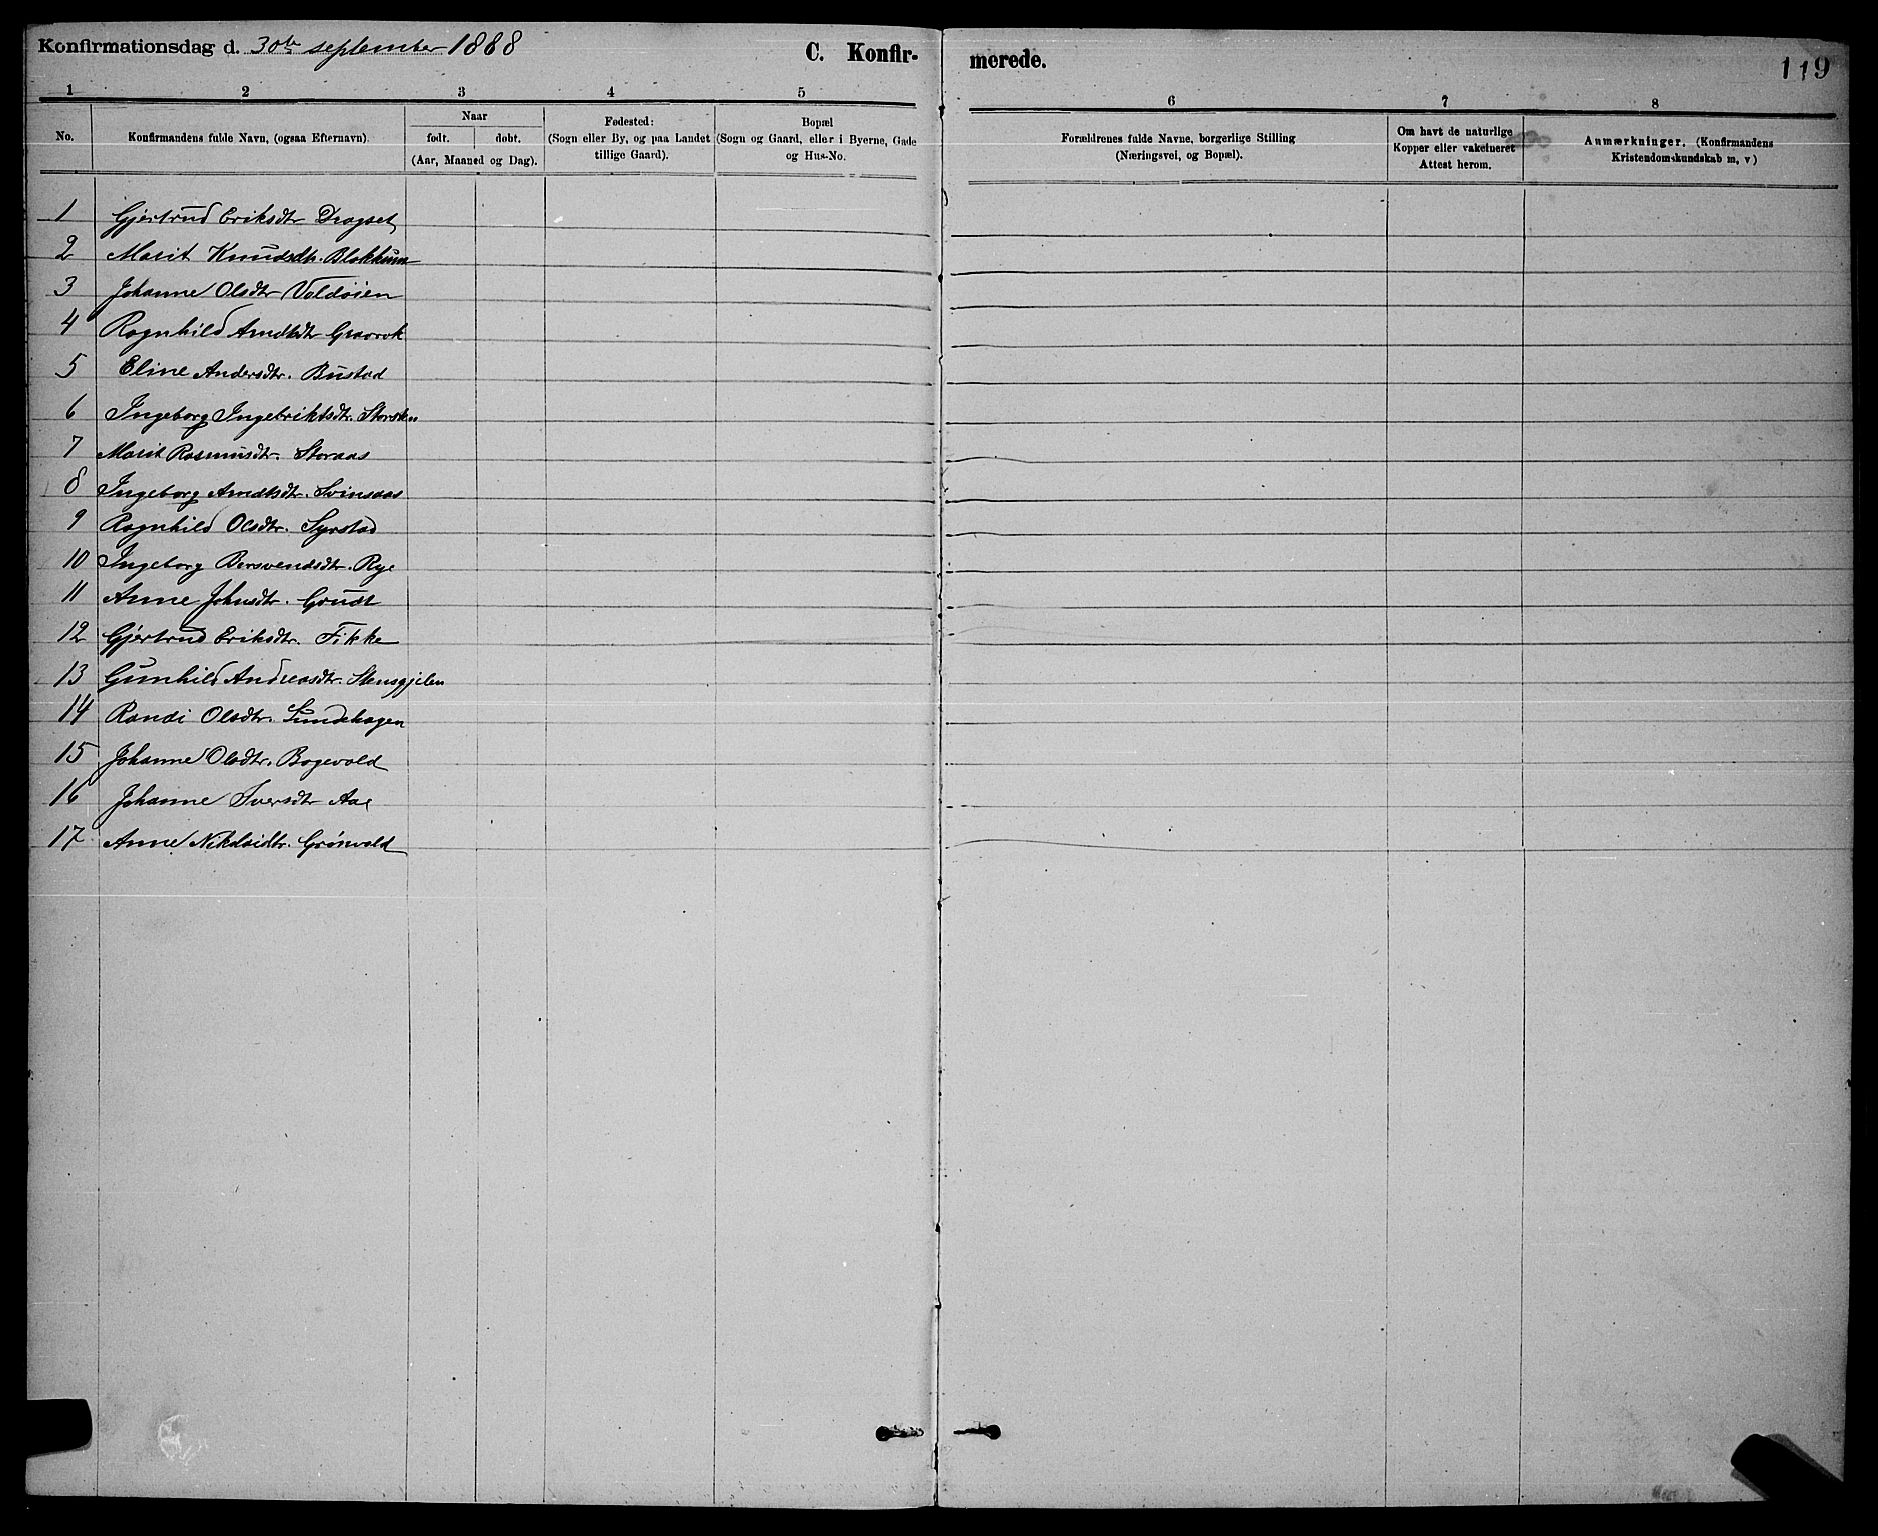 Konfirmationsdag d. 30te september 1888
C. Konfir- merede.
119
1 2 3 4 5 6 7 8
No.
Konfirmandens fulde Navn, (ogsaa Efternavn).
Naar
født. døbt.
(Aar, Maaned og Dag).
Fødested:
(Sogn eller By, og paa Landet
tillige Gaard).
Bopæl
(Sogn og Gaard, eller i Byerne, Gade
og Hus-No.
Forældrenes fulde Navne, borgerlige Stilling
(Næringsvei, og Bopæl).
Om havt de naturlige
Kopper eller vakcineret
Attest herom.
Anmærkninger. (Konfirmandens
Kristendomskundskab m, v)
1 Gjertrud Eriksdtr Dragset
2 Marit Knudsdtr. Blokkum
3 Johanne Olsdtr Valdøien
4 Ragnhild Arndtsdtr Graavok
5 Eline Andersdtr. Bustad
6 Ingeborg Ingebriktsdtr.
7 Marit Rasmusdtr. Storaas
8 Ingeborg Arndtsdtr. Svinsaas
9 Ragnhild Olsdtr. Syrstad
10 Ingeborg Bersvendsdtr. Rye
11 Anne Johnsdtr. Grudt
12 Gjertrud Eriksdtr. Fikke
13 Gunhild Andreasdtr. Stensgjelen
14 Randi Olsdtr. Sundhagen
15 Johanne Olsdtr. Bogevold
16 Johanne Iversdtr Aae
17 Anne Nikolaidtr. Grønvold